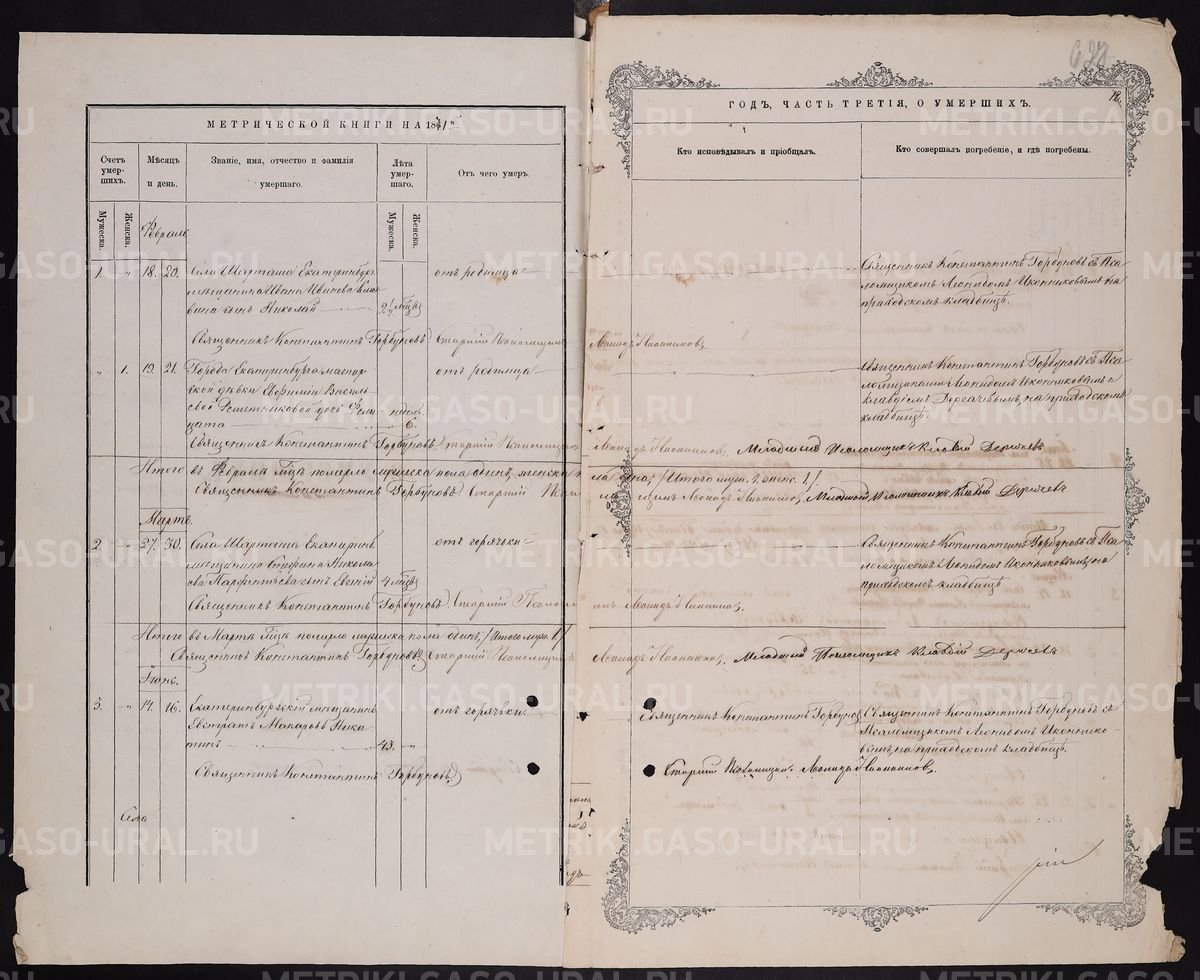 МЕТРИЧЕСКОЙ КНИГИ НА 1871й
ГОДЪ, ЧАСТЬ ТРЕТІЯ, О УМЕРШИХЪ.
12.
Счетъ умершихъ.
Мужеска.
Женска.
Мѣсяцъ и день.
Званіе, имя, отчество и фамилія умершаго.
Лѣта умершаго.
Мужеска.
Женска.
Отъ чего умеръ.
Кто исповѣдывалъ и пріобщалъ.
Кто совершалъ погребеніе, и гдѣ погребены.
Февраль
1. " 18. 20. Села Шарташа Екатеринбур.
мѣщанина Ивана Иванова
сынъ Николай
отъ родимца
Священникъ Константинъ Горбуновъ съ Пса-
ломщикомъ Леонидомъ Иконниковымъ на
приходскомъ кладбищѣ.
Священникъ Константинъ Горбуновъ. Старшій Псаломщикъ
Леонидъ Иконниковъ.
" 1. 19. 21. Города Екатеринбурга мастер-
ской дѣвки Евфиміи Василь-
евой дочь Фели-
цата
недѣль 6.
отъ родимца
Священникъ Константинъ Горбуновъ съ Пса-
ломщиками Леонидомъ Иконниковымъ и
Клавдіемъ Дергачевымъ, на приходскомъ
кладбищѣ.
Священникъ Константинъ Горбуновъ. Старшій Псаломщикъ
Леонидъ Иконниковъ. Младшій Псаломщикъ Клавдій Дергачевъ
Итого въ Февралѣ мцѣ померло мужеска пола одинъ, женска
/Итого муж. 1. женс. 1./
Священникъ Константинъ Горбуновъ Старшій
Леонидъ Иконниковъ, Младшій Псаломщикъ Клавдій Дергачевъ
Мартъ.
2. " 27. 30. Села Шарташа Екатеринб.
мѣщанина Стефана Никола-
ева Парфентьева сынъ Евгеній
4 мцѣ
отъ горячки
Священникъ Константинъ Горбуновъ съ Пса-
ломщикомъ Леонидомъ Иконниковымъ, на
приходскомъ кладбищѣ
Священникъ Константинъ Горбуновъ. Старшій
Леонидъ Иконниковъ.
Итого въ Мартѣ мцѣ померло мужеска пола одинъ, /Итого муж. 1./
Священникъ Константинъ Горбуновъ. Старшій Псаломщикъ
Леонидъ Иконниковъ. Младшій Псаломщикъ Клавдій Дергачевъ
Іюнь.
3. " 14. 16. Екатеринбургскій мѣщанинъ
Евстратъ Макаровъ Ники-
тинъ
43. "
отъ горячки.
Священникъ Константинъ Горбуновъ
Священникъ Константинъ Горбуновъ съ
Псаломщикомъ Леонидомъ Иконнико-
вымъ, на приходскомъ кладбищѣ.
Священникъ Константинъ Горбуновъ
Старшій Псаломщикъ Леонидъ Иконниковъ.
Села
METRIKI.GASO-URAL.RU